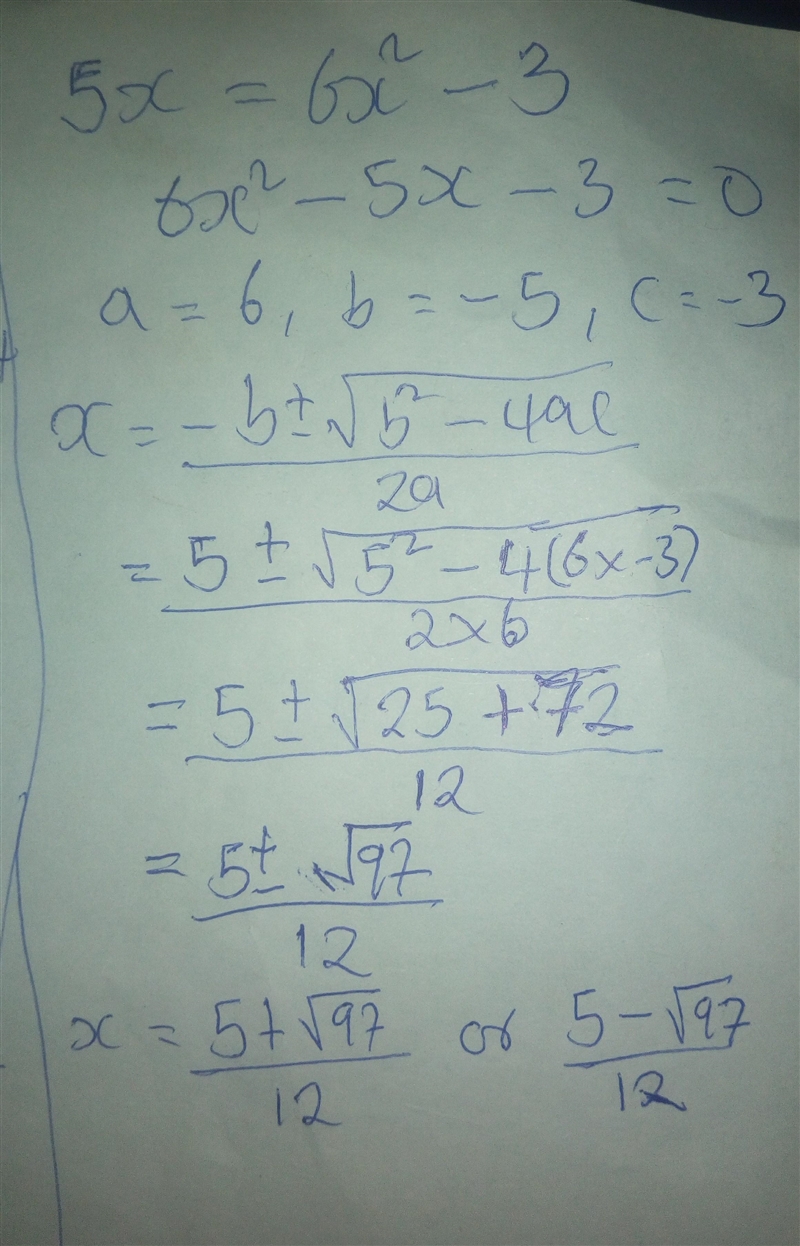 5x = 6x² - 3
6x² - 5x - 3 = 0
a = 6, b = -5, c = -3
x = -b ± √b² - 4ac
2a
= 5 ± √5² - 4(6x-3)
2×6
= 5 ± √25 + 72
12
= 5 ± √97
12
x = 5 + √97 or 5 - √97
12 12